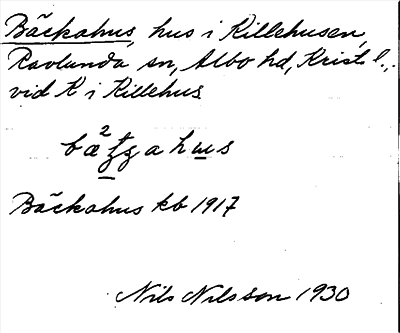 Bäckahus, hus i Killehusen,
Ravlunda sn, Albo hd, Krist l.,
vid K i Killehus
Bäckahus kb 1917
Nils Nilsson 1930